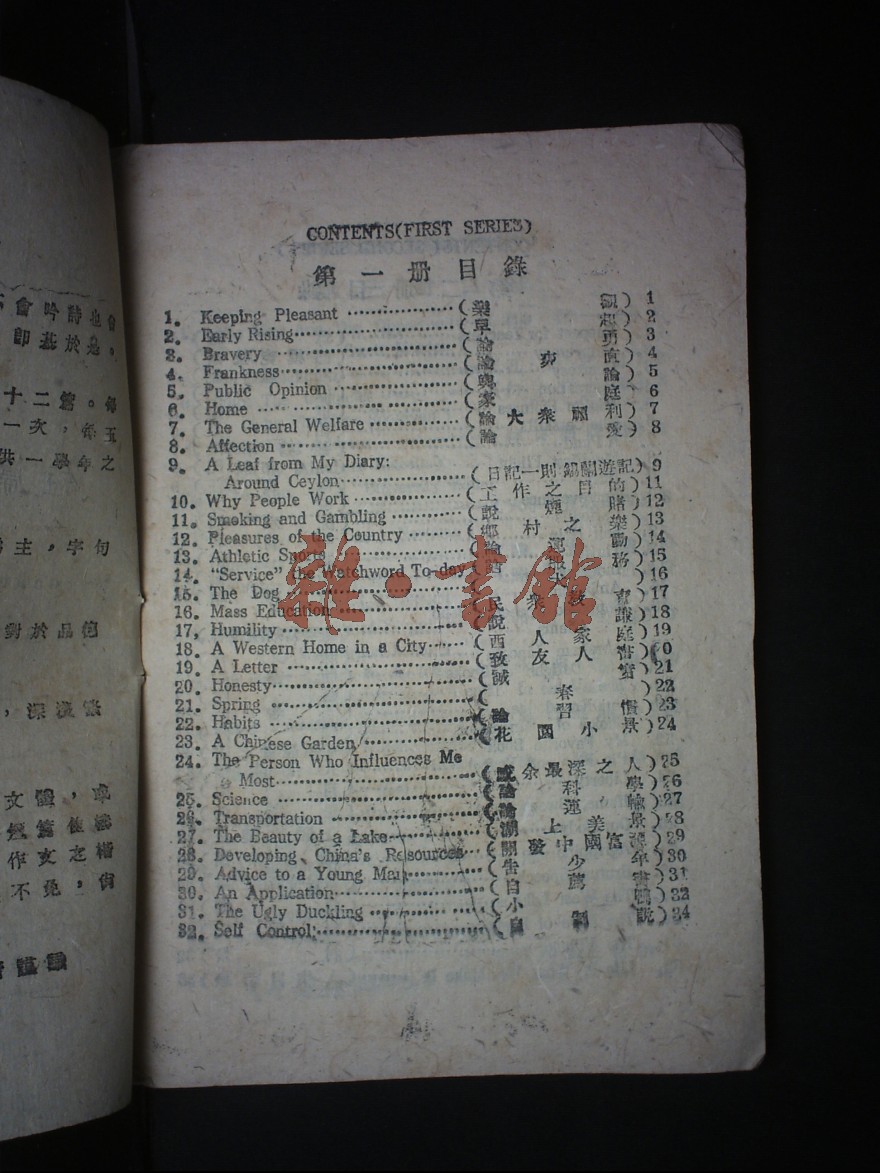 CONTENTS(FIRST SERIES)
第一册目錄
1. Keeping Pleasant (樂觀) 1
2. Early Rising (早起) 2
3. Bravery (論勇) 3
4. Frankness (論爽直) 4
5. Public Opinion (輿論) 5
6. Home (家庭) 6
7. The General Welfare (論大衆福利) 7
8. Affection (論愛) 8
9. A Leaf from My Diary:
Around Ceylon (日記一則錫蘭遊記) 9
10. Why People Work (工作之目的) 11
11. Smoking and Gambling (說煙賭) 12
12. Pleasures of the Country (鄉村之樂) 13
13. Athletic Sports (論運動) 14
14. "Service" the Watchword To-day 務) 15
15. The Dog 16
16. Mass Education (民衆教育) 17
17, Humility (說謙) 18
18. A Western Home in a City (西人家庭) 19
19. A Letter (致友人書)
20. Honesty (誠實) 21
21. Spring (春) 22
22. Habits (論習慣) 23
23. A Chinese Garden (花園小景) 24
24. The Person Who Influences Me
Most (感余最深之人) 25
25. Science (論科學) 26
26. Transportation (論運輸) 27
27. The Beauty of a Lake (湖上美景) 28
28. Developing China's Resources (開發中國富源) 29
29. Advice to a Young Man (告少年) 30
30. An Application (自薦書) 31
31. The Ugly Duckling (小 鴨) 32
32. Self Control (自制說) 34
雜·書館
會吟詩也會
即基於是,
十二篇。每
一次,每五
供一學年之
主,字句
對於品德
,深淺
文體,
作文之
不免,
謹識